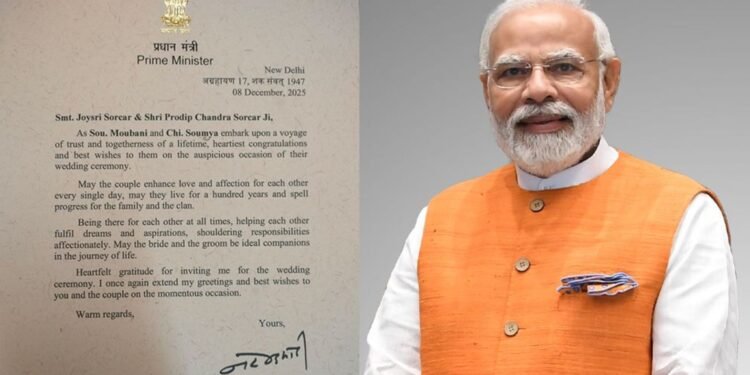 प्रधान मंत्री
Prime Minister
New Delhi
अग्रहायण 17, शक संवत् 1947
08 December, 2025
Smt. Joysri Sorcar & Shri Prodip Chandra Sorcar Ji,
As Sou. Moubani and Chi. Soumya embark upon a voyage
of trust and togetherness of a lifetime, heartiest congratulations
and best wishes to them on the auspicious occasion of their
wedding ceremony.
May the couple enhance love and affection for each other
every single day, may they live for a hundred years and spell
progress for the family and the clan.
Being there for each other at all times, helping each other
fulfil dreams and aspirations, shouldering responsibilities
affectionately. May the bride and the groom be ideal companions
in the journey of life.
Heartfelt gratitude for inviting me for the wedding
ceremony. I once again extend my greetings and best wishes to
you and the couple on the momentous occasion.
Warm regards,
Yours,